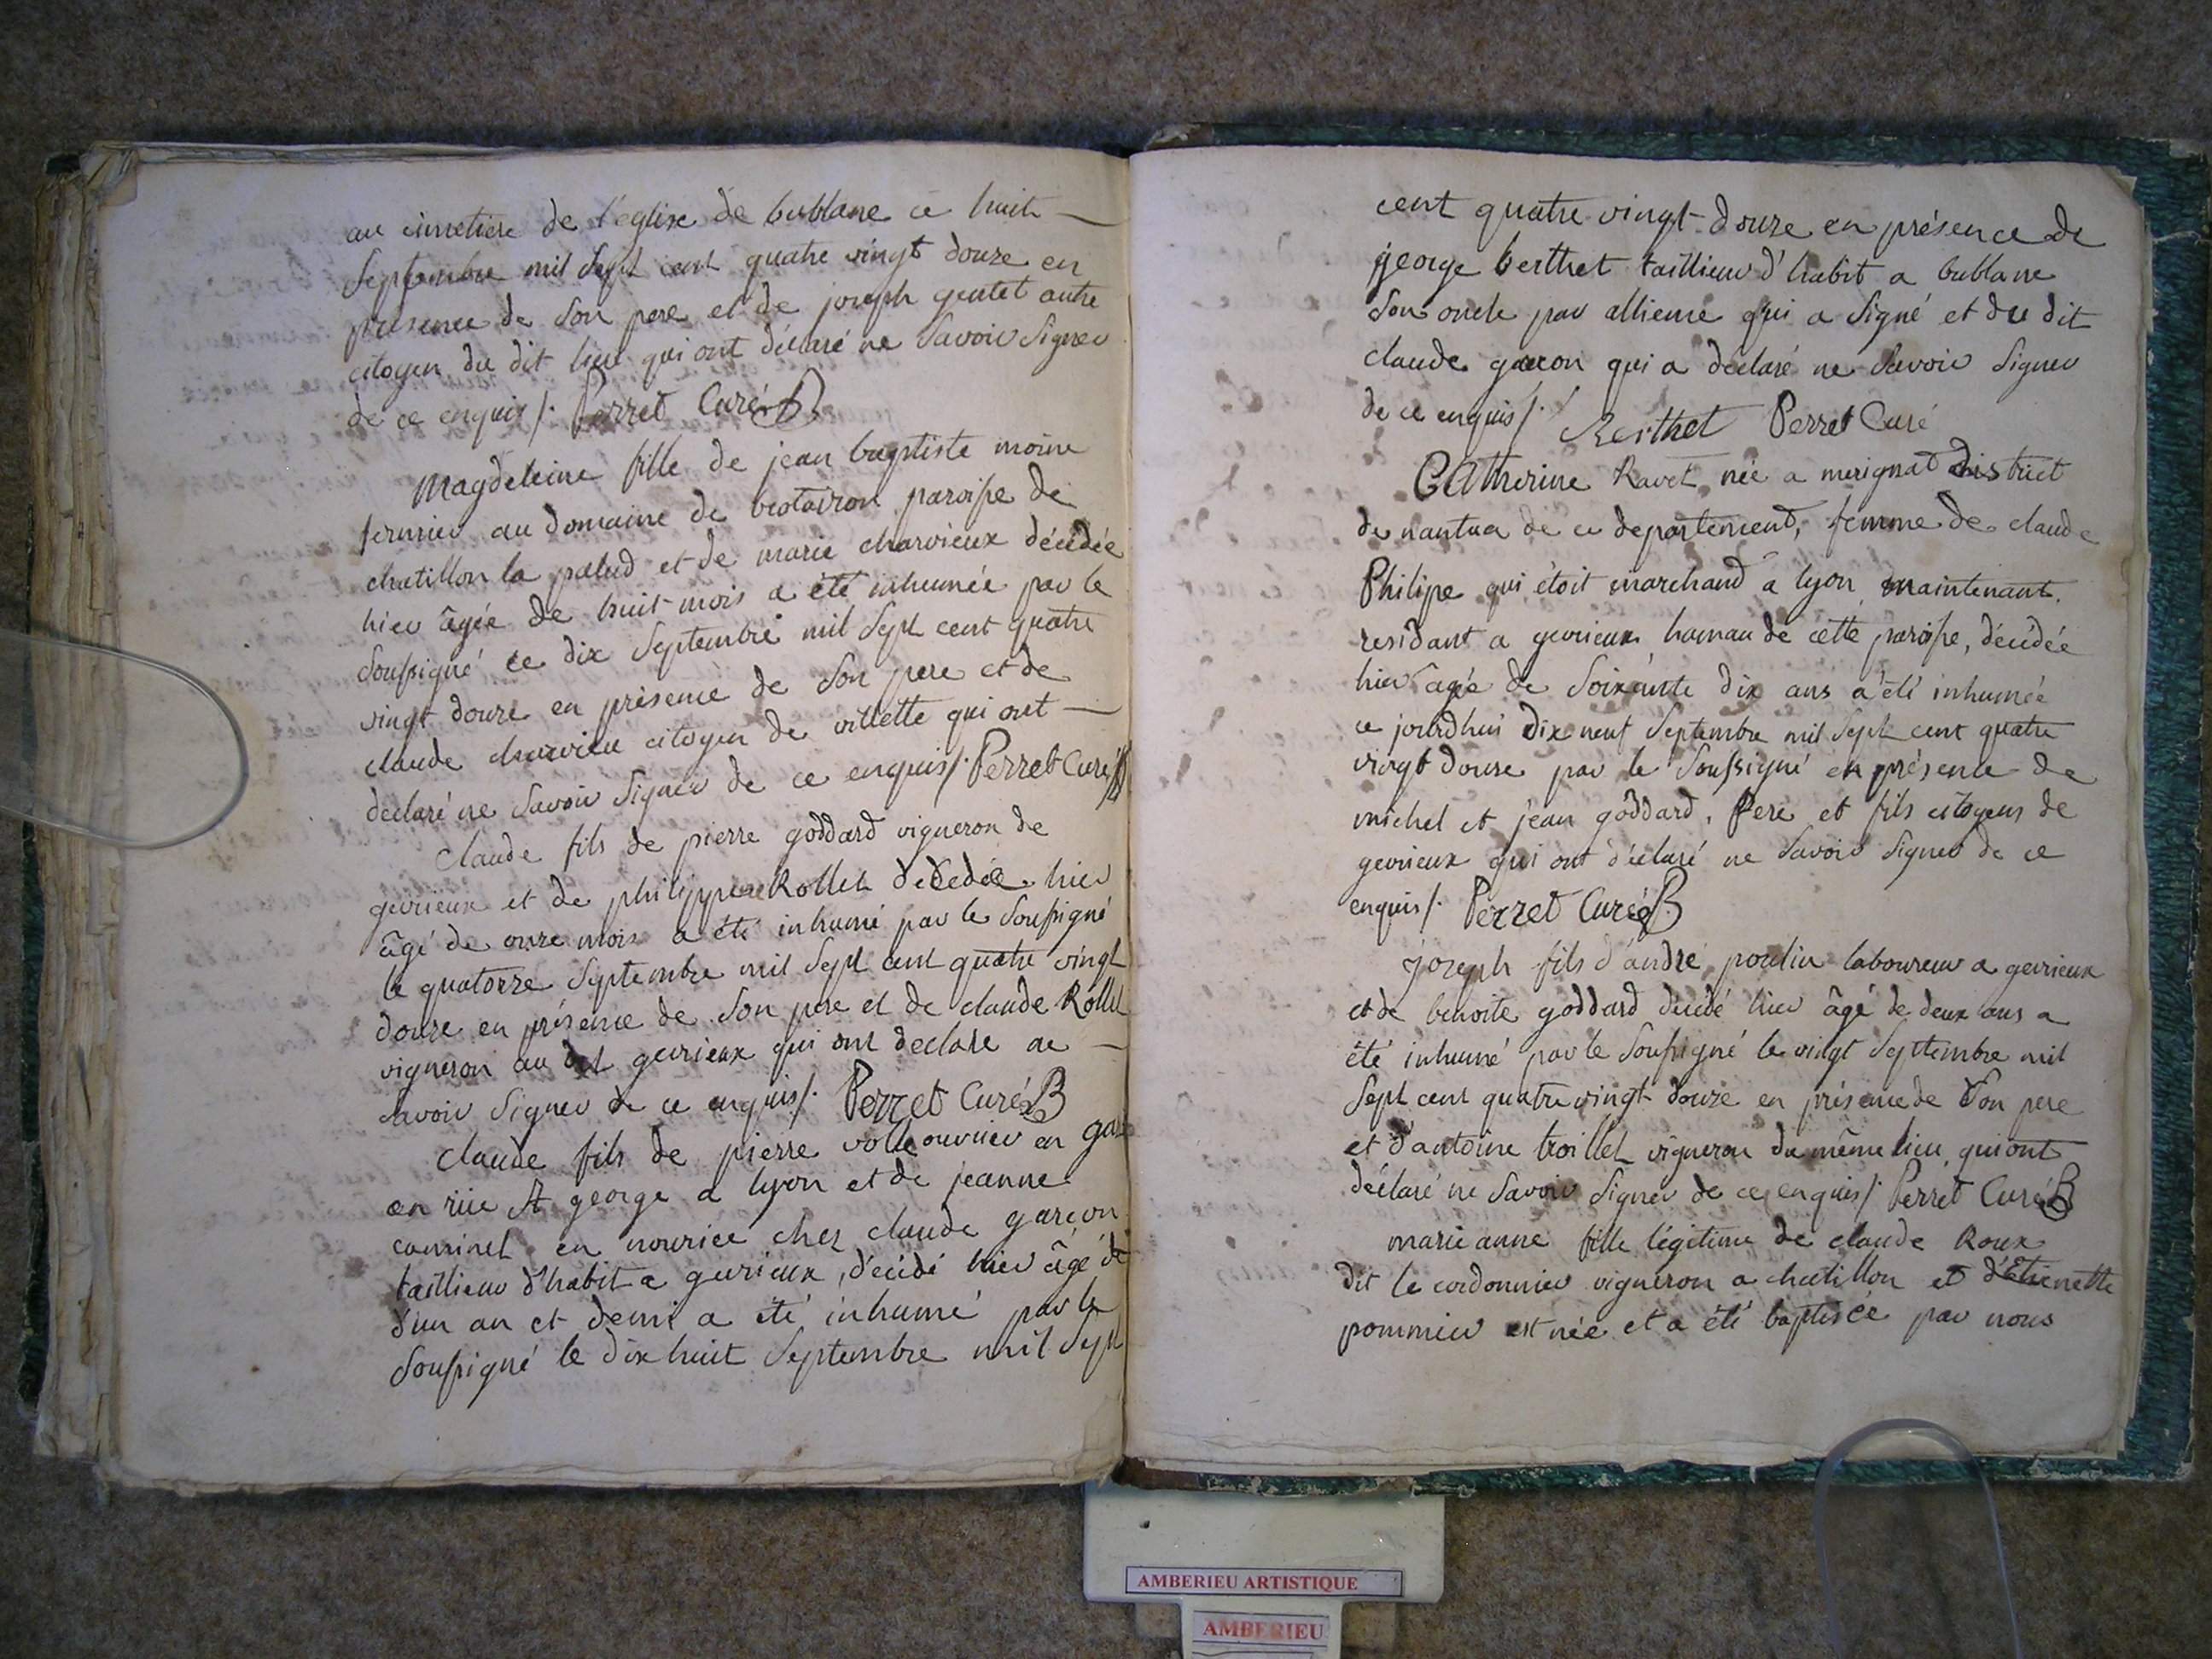 au cimetiere de l'eglise de bublane ce huit
Septembre mil Sept cent quatre vingt douze en
presence de Son pere et de joseph gentet autre
citoyen du dit lieu qui ont déclaré ne Savoir Signer
de ce enquis /. Perret Curé
Magdeleine fille de jean baptiste moine
fermier au domaine de paroisse de
chatillon la palud et de marie charvieux décédée
hier âgée de huit mois a été inhumée par le
Soussigné ce dix Septembre mil Sept cent quatre
vingt douze en présence de Son pere et de
claude charvieu citoyen de villette qui ont
declaré ne Savoir Signer de ce enquis /. Perret Curé
Claude fils de pierre goddard vigneron de
gevrieux et de philippine Rollet décédée hier
âgé de onze mois a été inhumé par le Soussigné
le quatorze Septembre mil Sept cent quatre vingt
douze en présence de Son pere et de claude Rollet
vigneron au dit gevrieux qui ont declaré ne
Savoir Signer de ce enquis /. Perret Curé
claude fils de pierre ouvrier en
en rüe St george a lyon et de jeanne
caminet en nourice chez claude garçon
taillieur d'habit a gevrieux, décédé hier âgé de
d'un an et demi a été inhumé par le
Soussigné le dix huit Septembre mil Sept
cent quatre vingt douze en présence de
george berthet taillieur d'habit a bublane
Son oncle par allience qui a Signé et du dit
claude garcon qui a déclaré ne Savoir Signer
de ce enquis /. Berthet Perret Curé
CAtherine Ravet née a merignat district
de nantua de ce departement, femme de claude
Philipe qui étoit marchand a lyon maintenant
residant a gevrieux hamau de cette paroisse, décédée
hier agée de Soixante dix ans a été inhumée
ce jourdhui dix neuf Septembre mil Sept cent quatre
vingt douze par le Soussigné en présence de
michel et jean goddard, Pere et fils citoyens de
gevrieux qui ont déclaré ne Savoir Signer de ce
enquis /. Perret Curé
joseph fils d'andré laboureur a gevrieux
et de benoite goddard décédé hier âgé de deux ans a
été inhumé par le Soussigné le vingt Septembre mil
Sept cent quatre vingt douze en présence de Son pere
et d'antoine troillet vigneron du même lieu qui ont
déclaré ne Savoir Signer de ce enquis /. Perret Curé
marie anne fille légitime de claude Roux
dit le cordonnier vigneron a chatillon et d'Etienette
pommier est née et a été baptisée par nous
AMBERIEU ARTISTIQUE
AMBERIEU